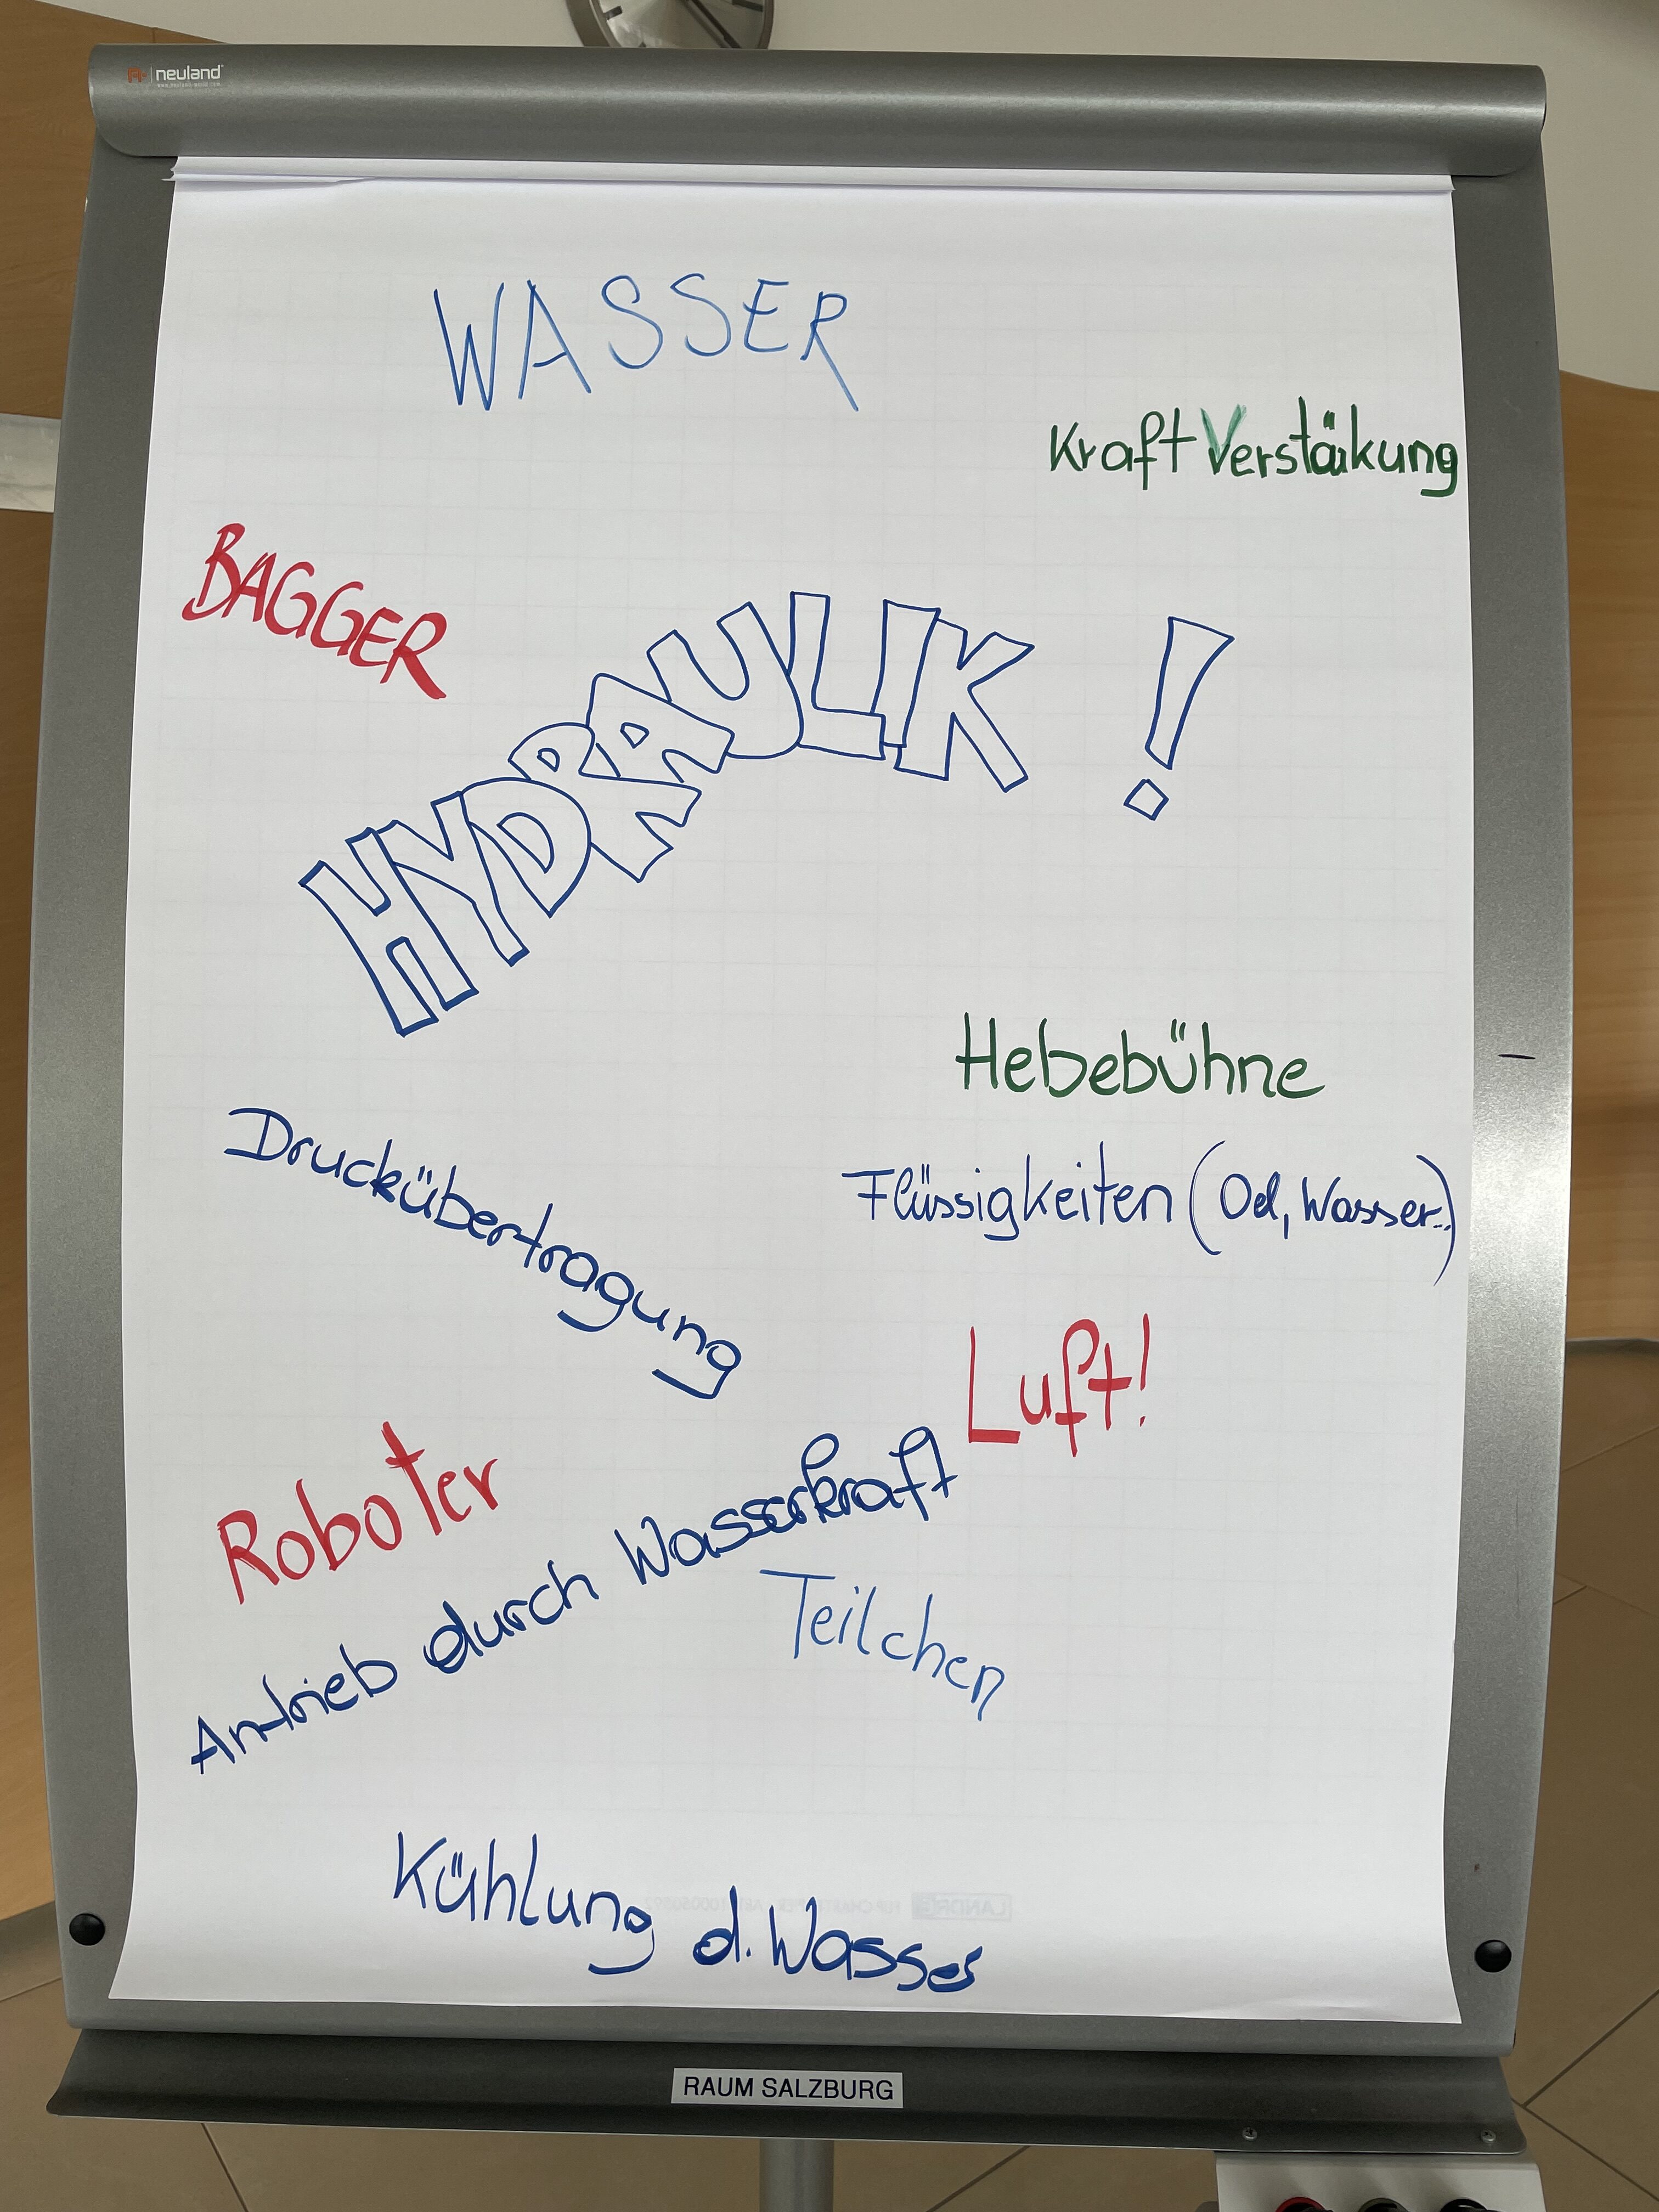 neuland
WASSER
Kraft Verstärkung
BAGGER
HYDRAULIK !
Hebebühne
Druckübertragung
Flüssigkeiten (Oel, Wasser..)
Luft!
Roboter
Antrieb durch Wasserkraft
Teilchen
Kühlung d. Wasser
RAUM SALZBURG